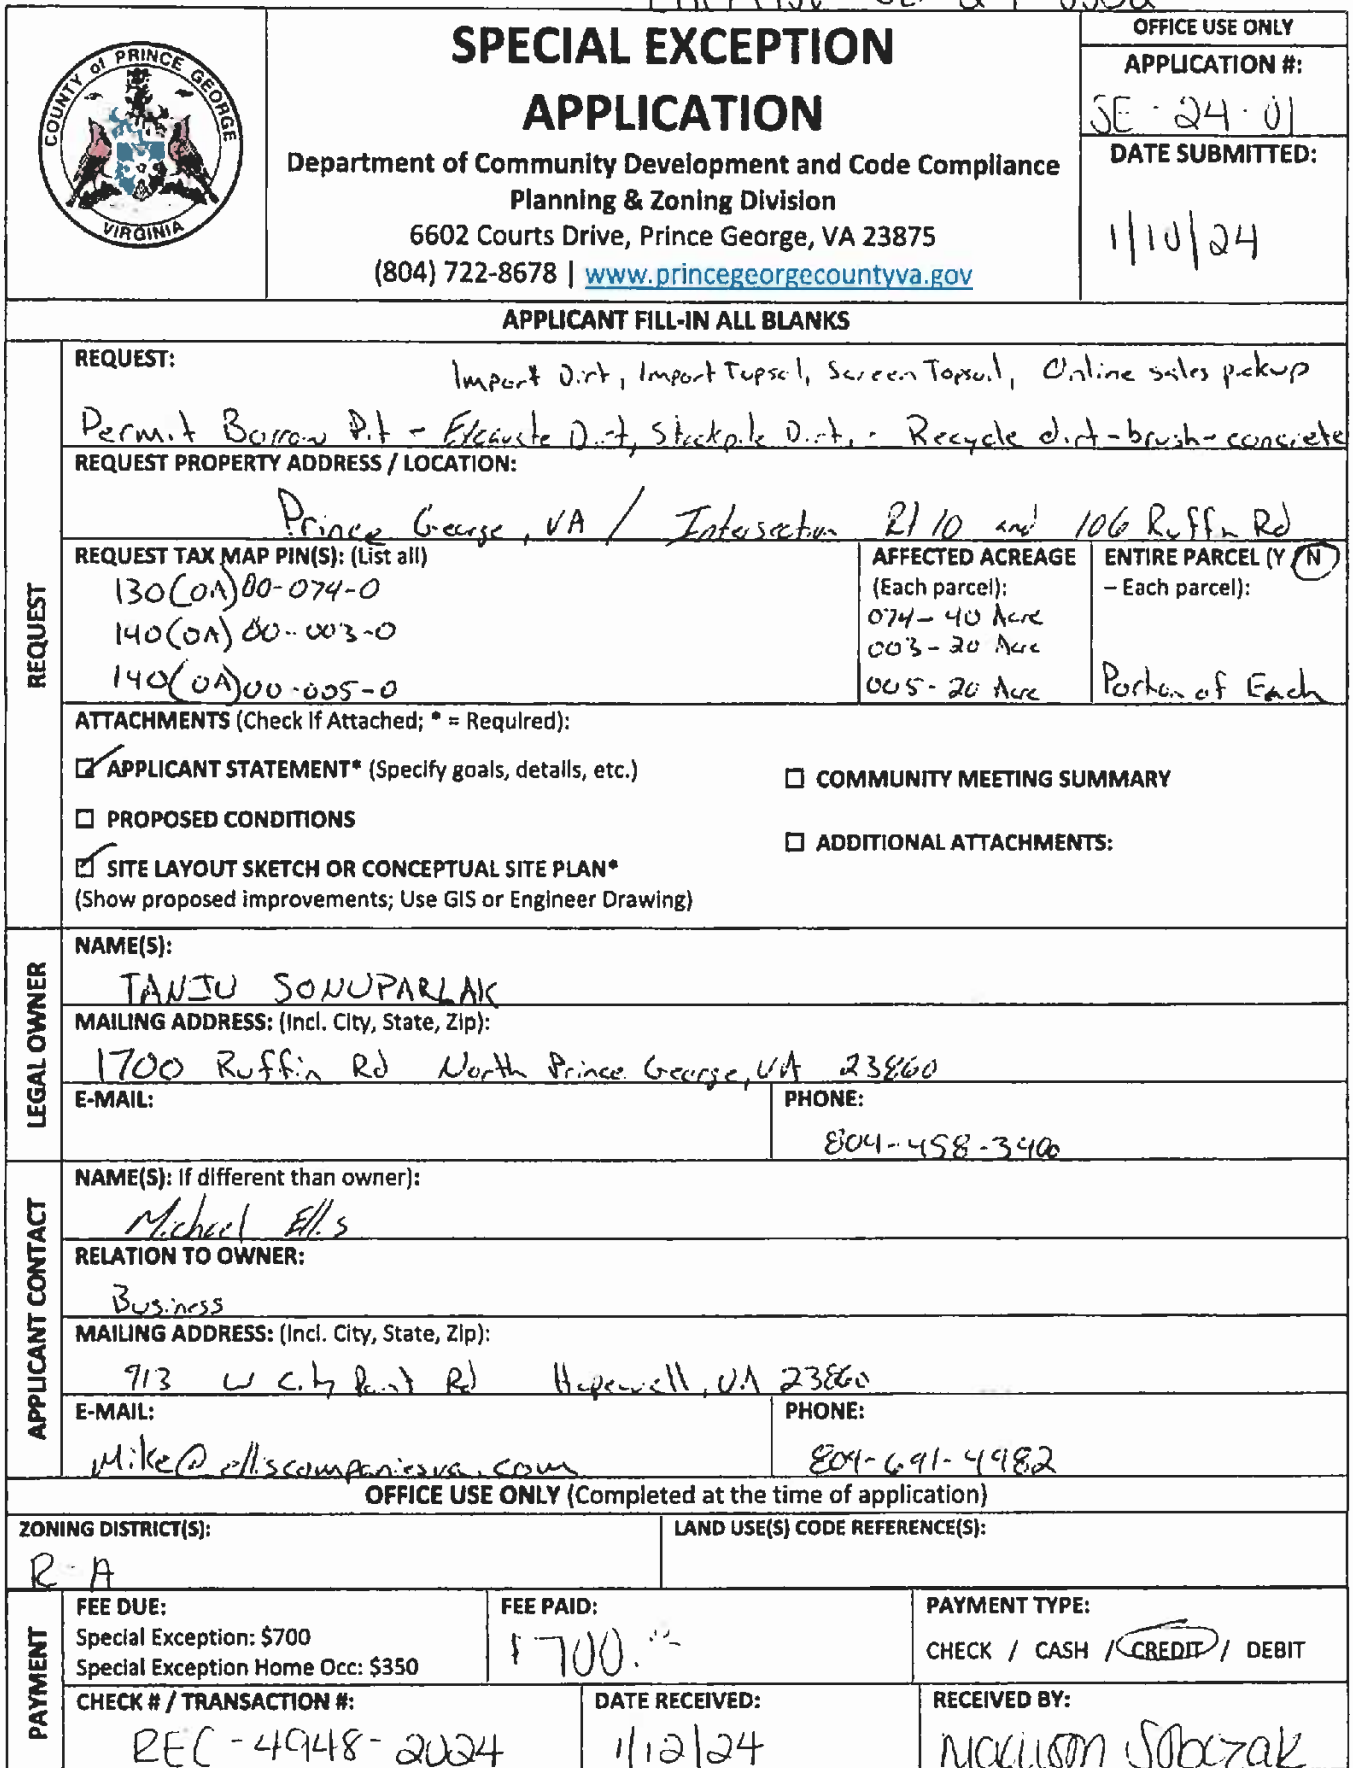 COUNTY of PRINCE GEORGE
VIRGINIA
SPECIAL EXCEPTION
APPLICATION
Department of Community Development and Code Compliance
Planning & Zoning Division
6602 Courts Drive, Prince George, VA 23875
(804) 722-8678 | www.princegeorgecountyva.gov
OFFICE USE ONLY
APPLICATION #:
SE-24-01
DATE SUBMITTED:
1/10/24
APPLICANT FILL-IN ALL BLANKS
REQUEST
REQUEST:
Import Dirt, Import Topsoil, Screen Topsoil, Online sales pickup
Permit Borrow Pit - Excavate Dirt, Stockpile Dirt, - Recycle dirt-brush-concrete
REQUEST PROPERTY ADDRESS / LOCATION:
Prince George, VA / Intersection Rt 10 and 106 Ruffin Rd
REQUEST TAX MAP PIN(S): (List all)
130(0A)00-074-0
140(0A)00-003-0
140(0A)00-005-0
AFFECTED ACREAGE
(Each parcel):
074-40 Acre
003-20 Acre
005-20 Acre
ENTIRE PARCEL (Y / N
– Each parcel):
Portion of Each
ATTACHMENTS (Check if Attached; * = Required):
APPLICANT STATEMENT* (Specify goals, details, etc.)
PROPOSED CONDITIONS
SITE LAYOUT SKETCH OR CONCEPTUAL SITE PLAN*
(Show proposed improvements; Use GIS or Engineer Drawing)
COMMUNITY MEETING SUMMARY
ADDITIONAL ATTACHMENTS:
LEGAL OWNER
NAME(S):
TANJU SONUPARLAK
MAILING ADDRESS: (Incl. City, State, Zip):
1700 Ruffin Rd North Prince George, VA 23860
E-MAIL:
PHONE:
804-458-3400
APPLICANT CONTACT
NAME(S): If different than owner):
Michael Ellis
RELATION TO OWNER:
Business
MAILING ADDRESS: (Incl. City, State, Zip):
913 W City Point Rd Hopewell, VA 23860
E-MAIL:
Mike@elliscompaniesva.com
PHONE:
804-691-4982
OFFICE USE ONLY (Completed at the time of application)
ZONING DISTRICT(S):
R-A
LAND USE(S) CODE REFERENCE(S):
PAYMENT
FEE DUE:
Special Exception: $700
Special Exception Home Occ: $350
FEE PAID:
$700.00
PAYMENT TYPE:
CHECK / CASH / CREDIT / DEBIT
CHECK # / TRANSACTION #:
REC-4948-2024
DATE RECEIVED:
1/12/24
RECEIVED BY:
Madison Sobczak